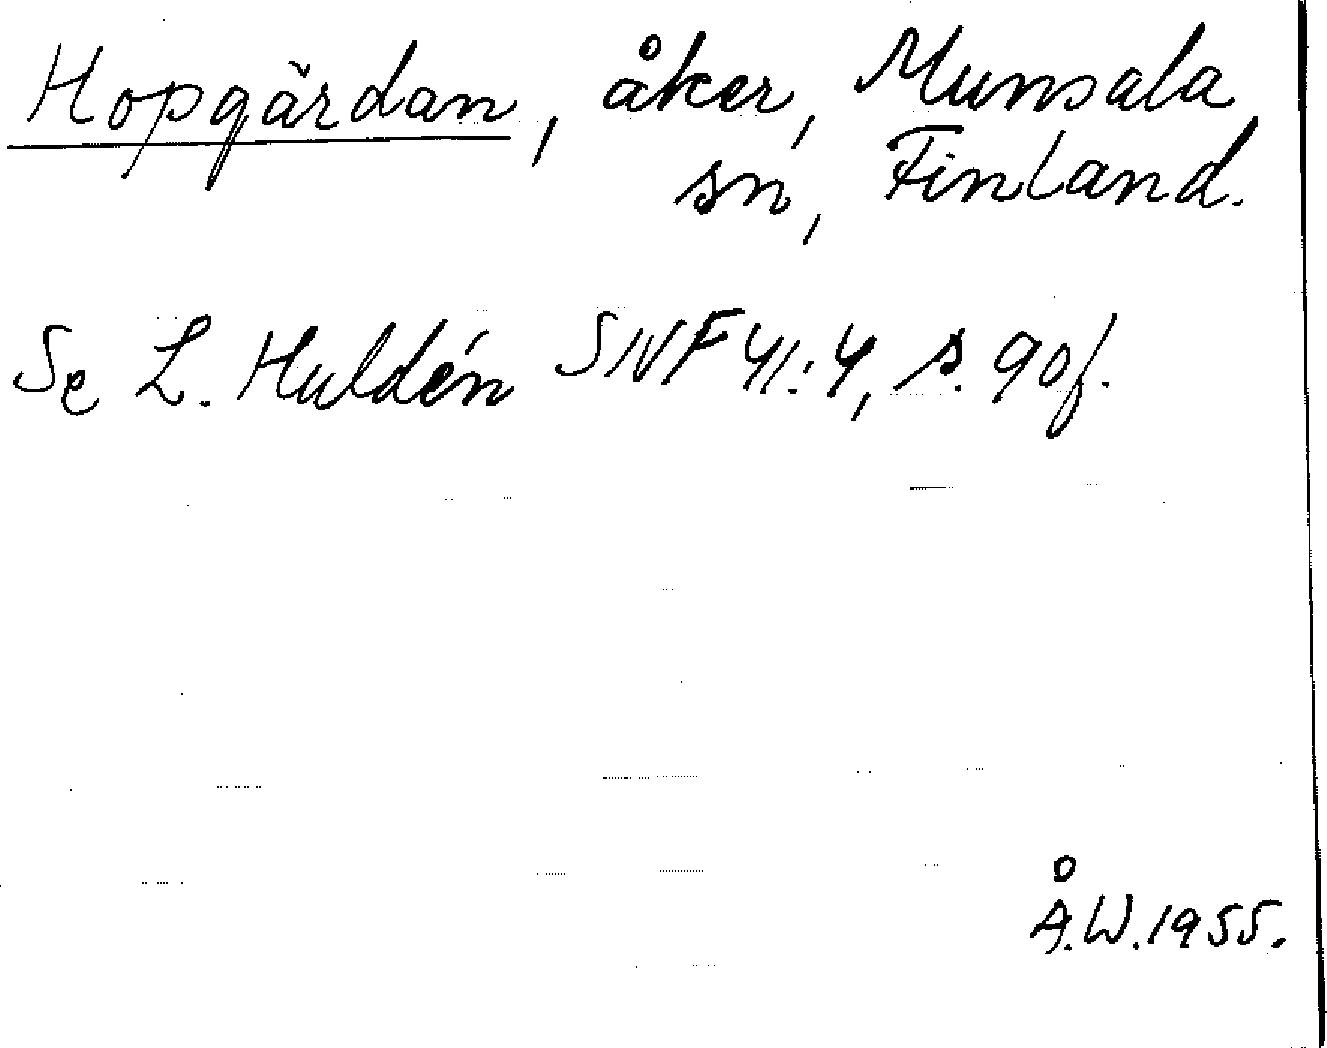 Hopgärdan, åker, Munsala
sn, Finland.
Se L. Huldén SNF 41:4, s. 90f.
Å.W.1955.